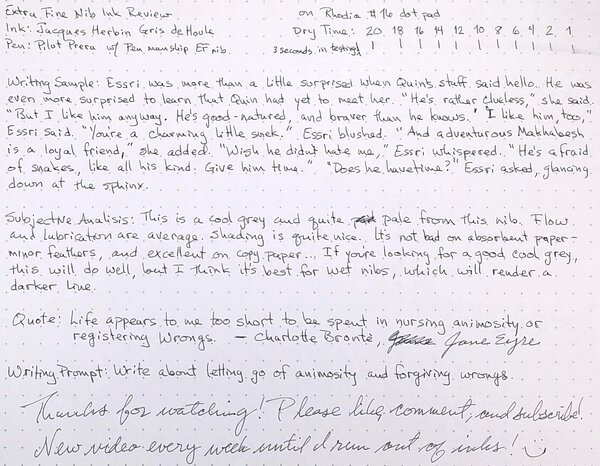 Extra Fine Nib Ink Review
on Rhodia #16 dot pad
Ink: Jacques Herbin Gris de Houle
Dry Time: 20 18 16 14 12 10 8 6 4 2 1
Pen: Pilot Prera w/ Penmanship EF nib
3 seconds in testing
Writing Sample: Essri was more than a little surprised when Quin's staff said hello. He was
even more surprised to learn that Quin had yet to meet her. "He's rather clueless," she said.
"But I like him anyway. He's good-natured, and braver than he knows." "I like him, too,"
Essri said. "You're a charming little snek." Essri blushed. "And adventurous Makhabesh
is a loyal friend," she added. "Wish he didn't hate me," Essri whispered. "He's afraid
of snakes, like all his kind. Give him time." "Does he have time?" Essri asked, glancing
down at the sphinx.
Subjective Analisis: This is a cool grey and quite pale from this nib. Flow
and lubrication are average. Shading is quite nice. It's not bad on absorbent paper-
minor feathers, and excellent on copy paper... If you're looking for a good cool grey,
this will do well, but I think it's best for wet nibs, which will render a
darker line.
Quote: Life appears to me too short to be spent in nursing animosity or
registering wrongs. - Charlotte Brontë, Jane Eyre
Writing Prompt: Write about letting go of animosity and forgiving wrongs.
Thanks for watching! Please like, comment, and subscribe!
New video every week until I run out of inks!